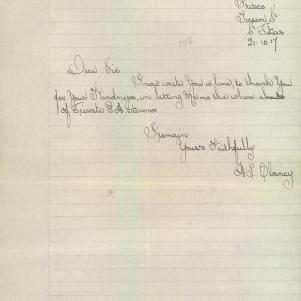 Frisco
Toyer St
St Peters
21.10.17
Dear Sir
I now write you a line, to thank you
for your Kindness, in letting me no the where abouts
of Private E A Stevens
I remain
Yours Faithfully
A. L. Clancy